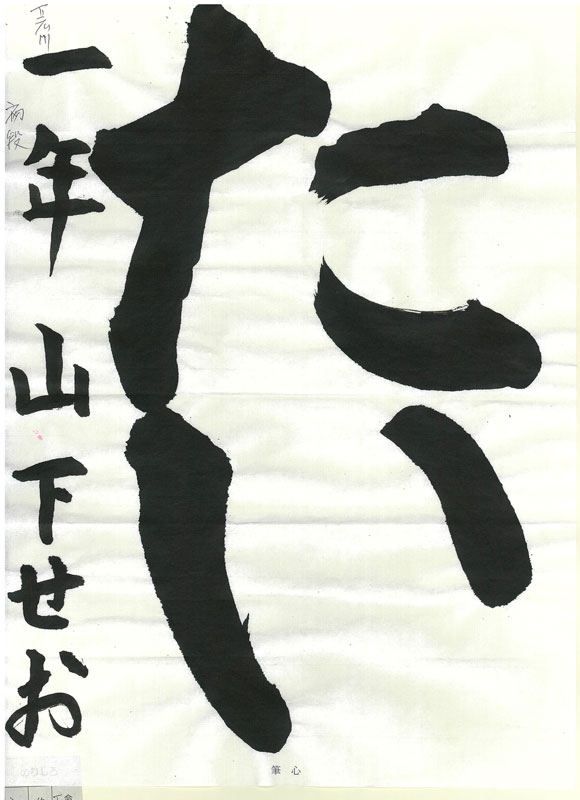 たい
一年 山下せお
初段
筆心